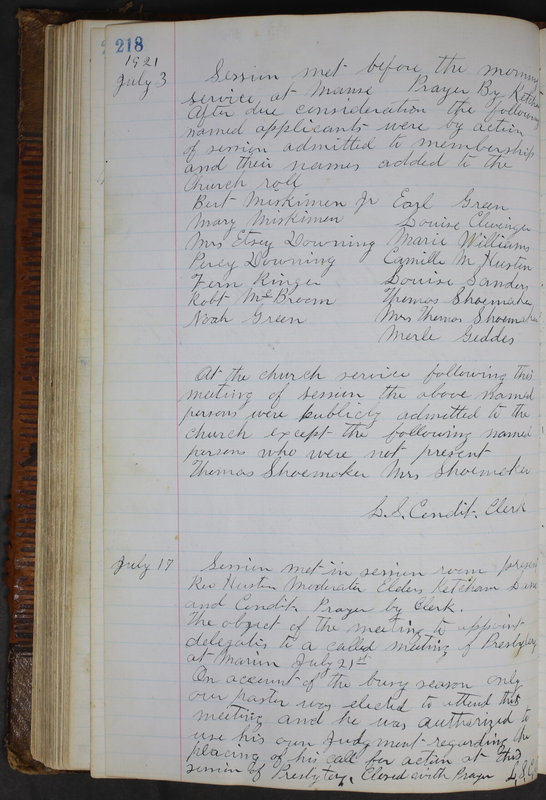 218
1921
July 3 Session met before the morning
service at Manse Prayer By Ketcham
After due consideration the following
named applicants were by action
of session admitted to membership
and their names added to the
church roll
Bert Miskimen Jr Earl Green
Mary Miskimen Louise Clevinger
Mrs Etsey Downing Marie Williams
Percy Downing Camille M Hustin
Fern Ringer Louise Sanders
Robt McBroom Thomas Shoemaker
Noah Green Mrs Thomas Shoemaker
Merle Geddes
At the church service following this
meeting of session the above named
persons were publicly admitted to the
church except the following named
persons who were not present
Thomas Shoemaker Mrs Shoemaker
L.S. Condit. Clerk
July 17 Session met in session room present
Rev Hustin Moderator Elders Ketcham
and Condit. Prayer by Clerk.
The object of the meeting to appoint
delegates to a called meeting of Presbytery
at Marion July 21st
On account of the busy season only
our pastor was elected to attend this
meeting and he was authorized to
use his own Judgment regarding the
placing of his call for action at this
session of Presbytery. Closed with Prayer L.S.C.